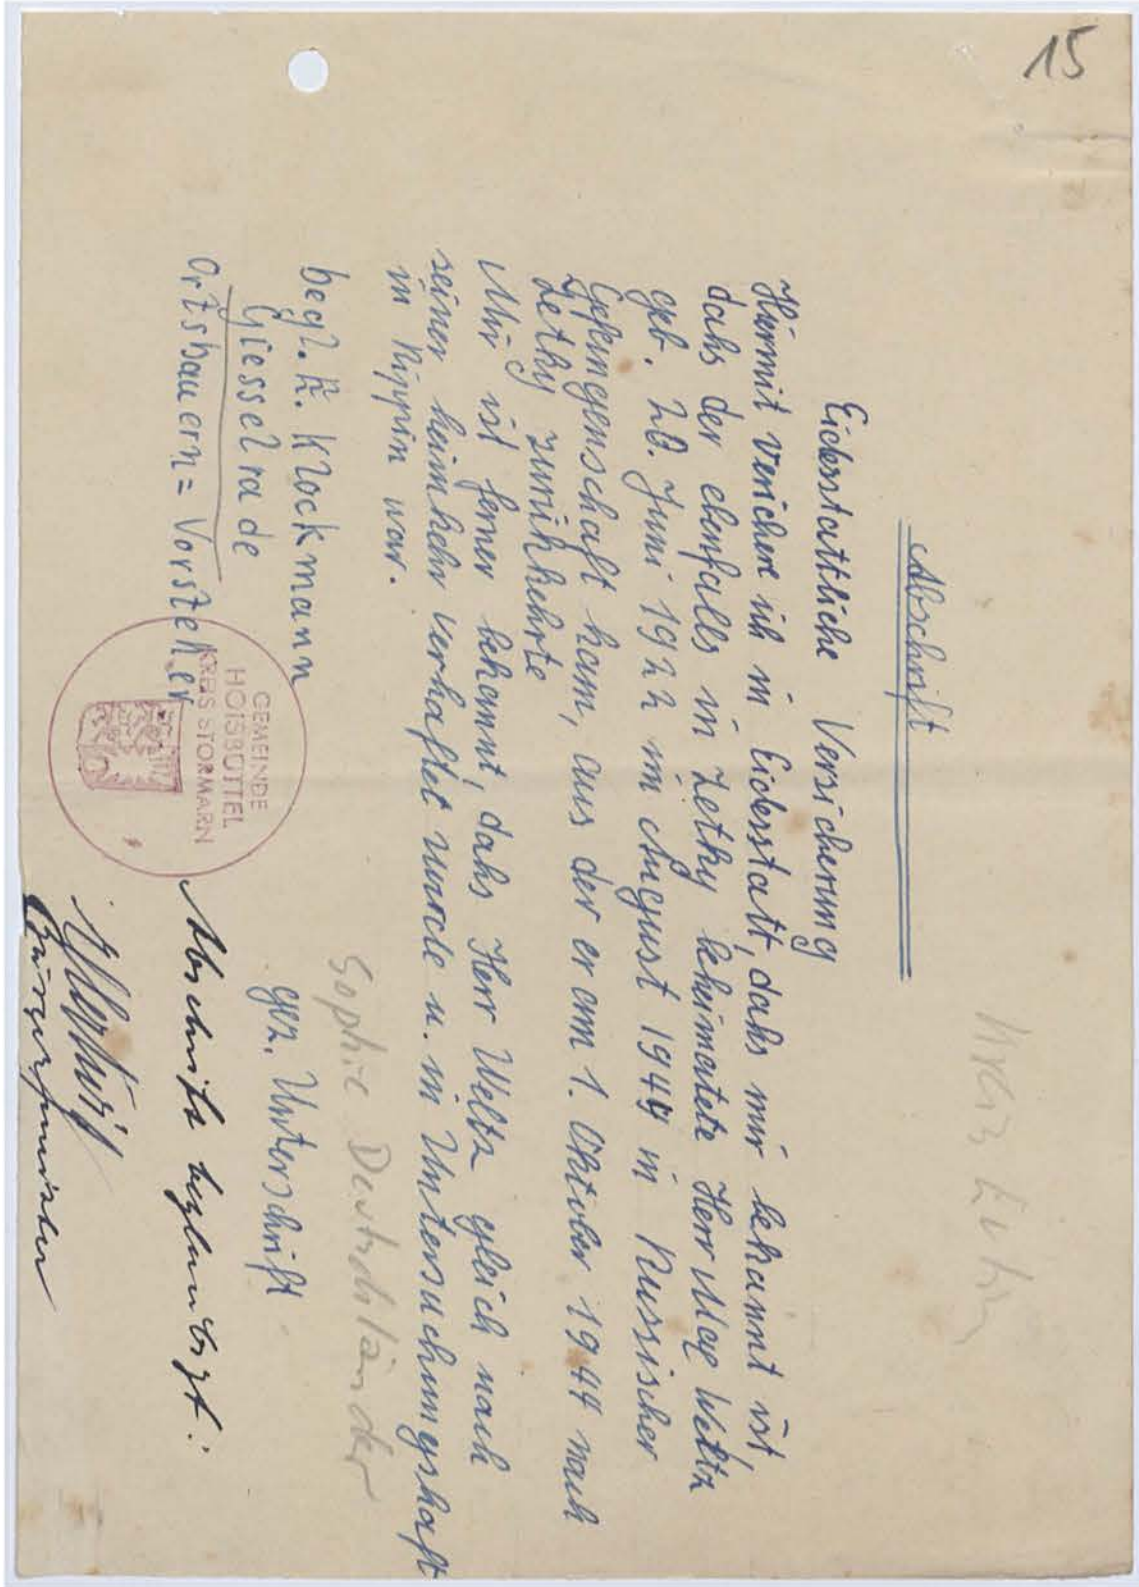 15
Abschrift
Eidesstattliche Versicherung
Hiermit versichere ich in Eidesstatt, dahs mir bekannt ist,
dahs der ebenfalls in Zetky beheimatete Herr Max Weltz
geb. 20. Juni 1922 im August 1944 in Russischer
Gefangenschaft kam, aus der er am 1. Oktober 1944 nach
Zetky zurükkehrte
Mir ist ferner bekannt, dahs Herr Weltz gleich nach
seiner heimkehr verhaftet wurde u. in Untersuchungshaft
in Rippin war.
Sophie Deutschländer
begl. R. Klockmann
gez. Unterschrift
Giesselrade
Ortsbauern=Vorsteher
Abschrift beglaubigt:
GEMEINDE
HOISBÜTTEL
KREIS STORMARN
Bürgermeister